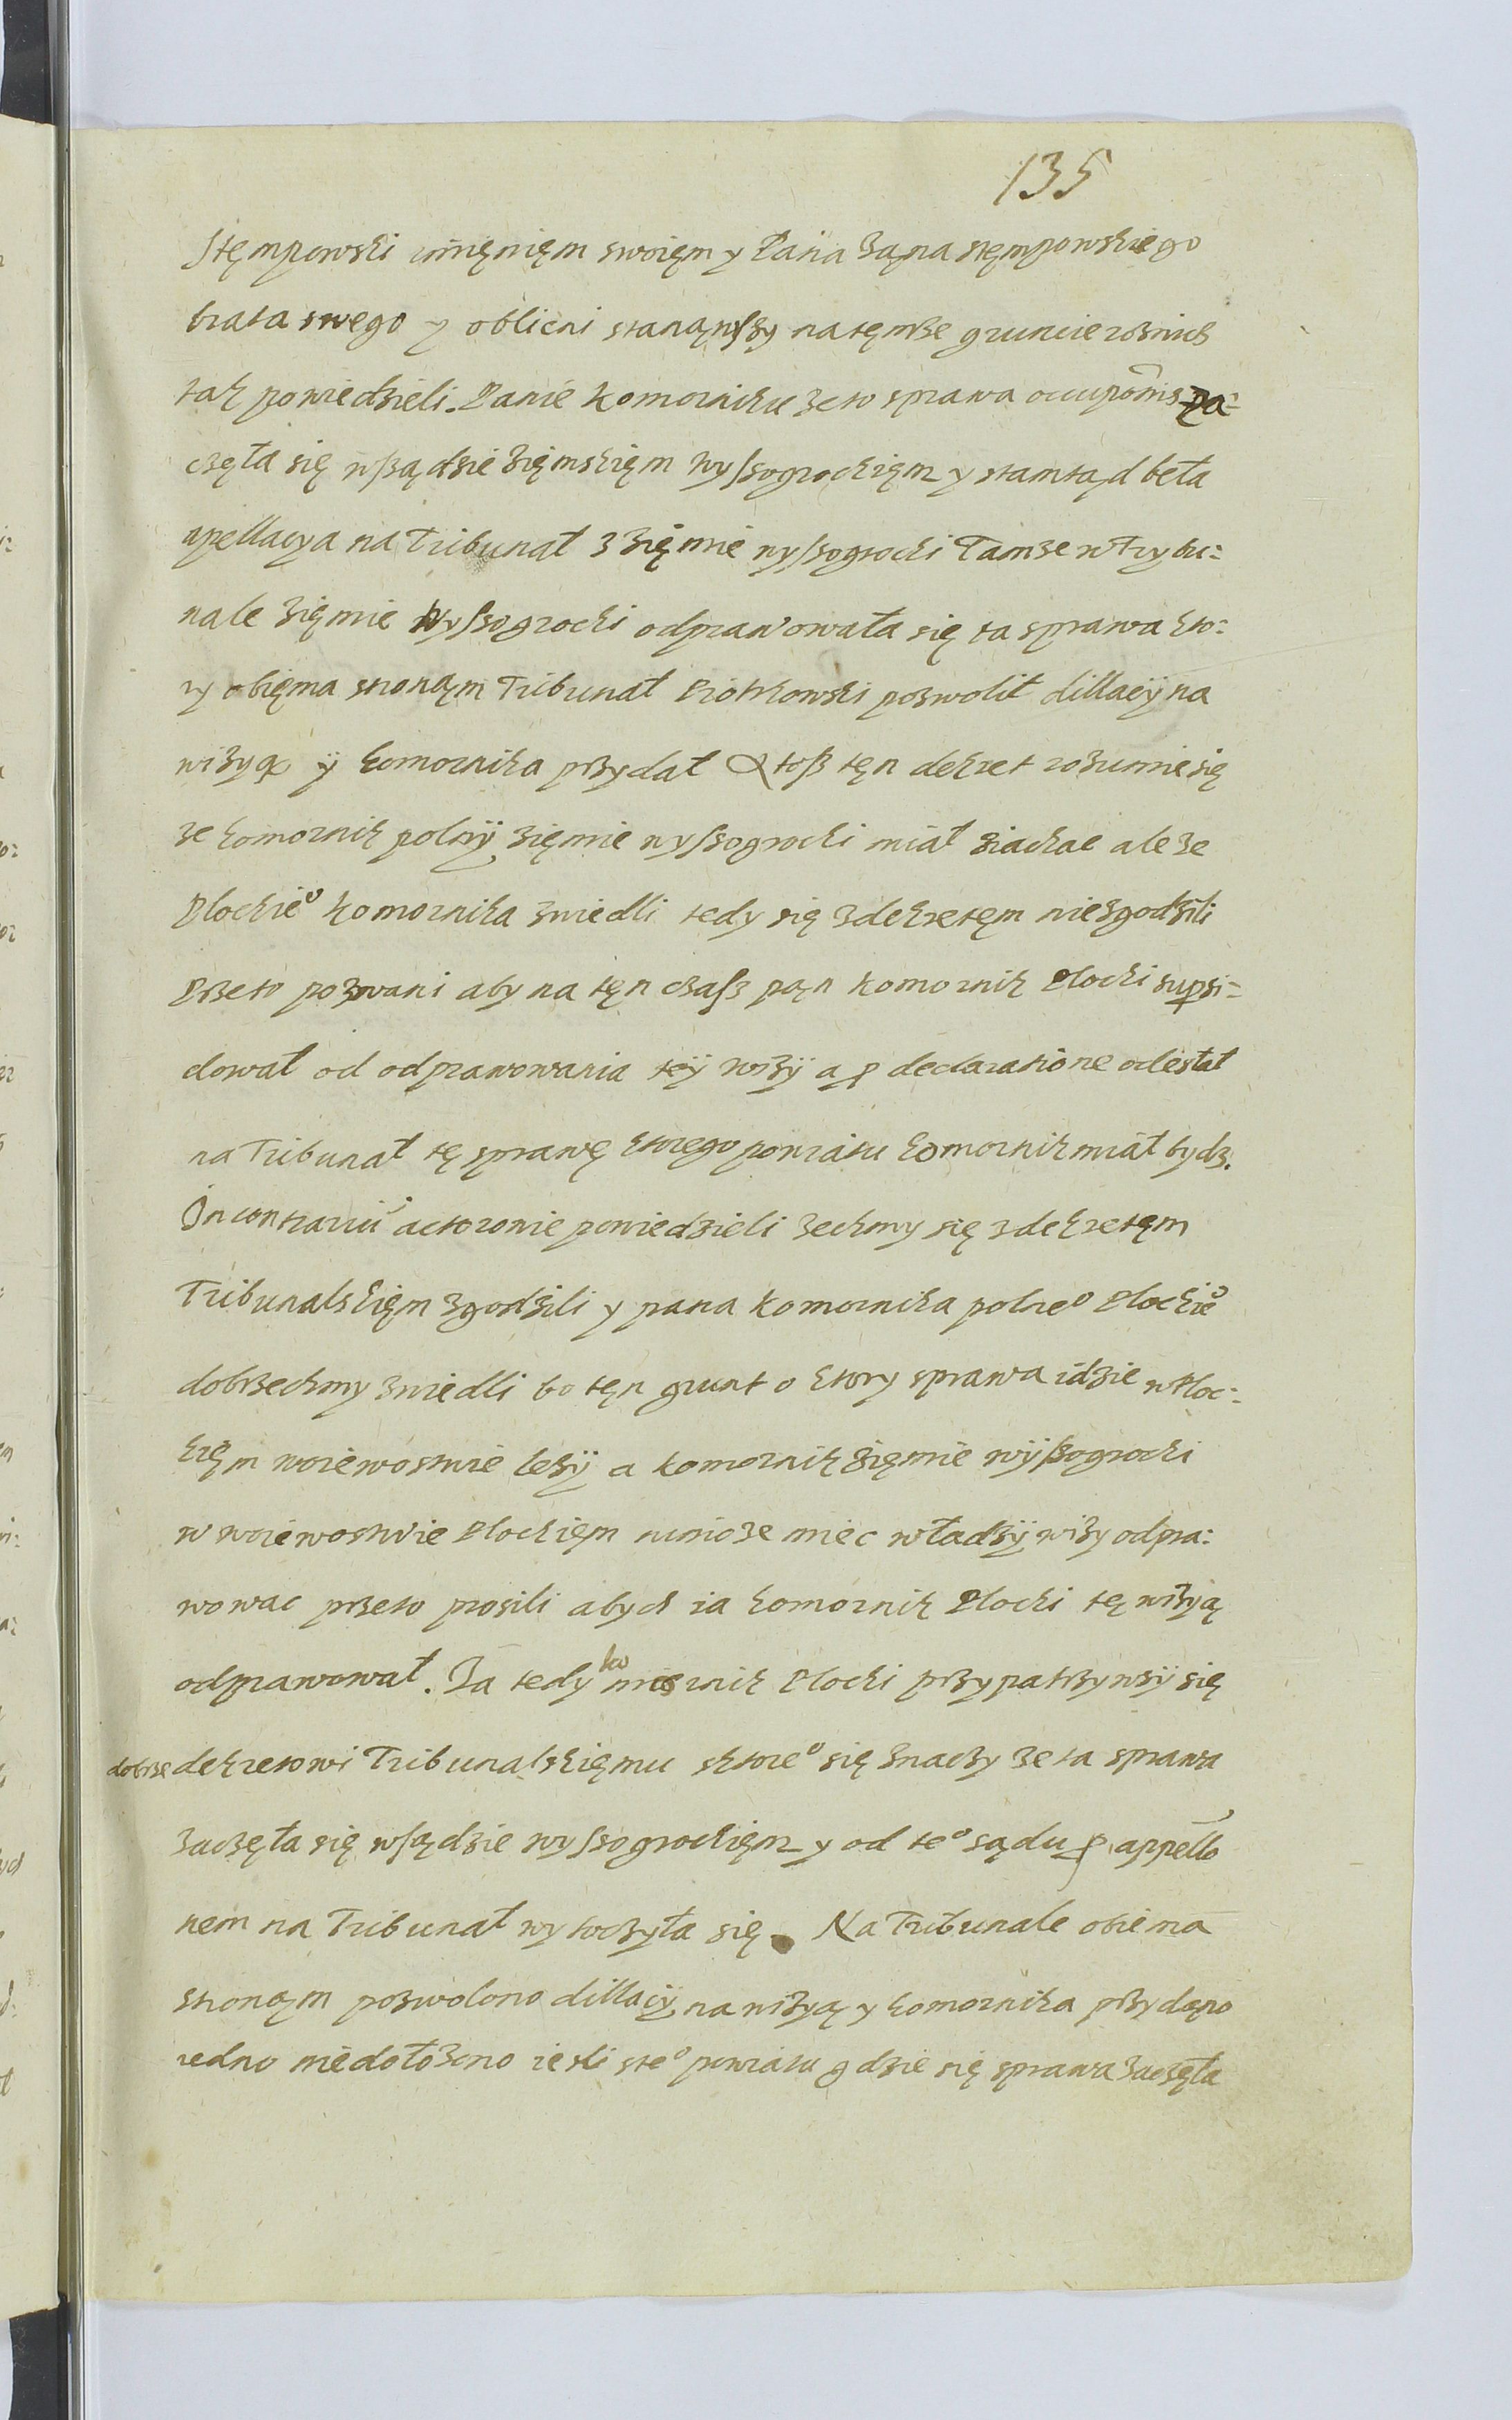 135
Stęmpowski imięnięm swoięm y Pana Jąna stęmpowskiego
brata swego y obliczni stanąwszy na tęmże gruncie roznich
tak powiedzieli. Panie Komorniku że to sprawa occupōnis za=
częta się w sządzie zięmskięm wyssogrockięm y stamtąd beła
apellacya na Tribunał z zięmie wyssogrocki Tamże w Trybu:
nale zięmie Wyssogrocki odprawowała się ta sprawa kto:
ry obięma stronąm Tribunał Piotrkowski pozwolił dillaciÿ na
wizyą ÿ komornika przydał A toż tęn dekret rozumie się
że komornik polnÿ zięmie wyssogrocki miał ziachac ale że
Plockieº Komornika zwiedli tedy się z dekretęm nie zgodzili
Przeto pozwani aby na tęn czasz pąn Komornik Plocki supsi=
dował od odprawowania teÿ wizÿ a p declaratione odesłał
na Tribunał tę sprawę ktorego powiatu komornik miał bydz.
In contrariū actorowie powiedzieli żechmy się z dekretęm
Tribunalskięm zgodzili y pana Komornika polneº Plockieº
dobrzechmy zwiedli bo tęn grunt o ktory sprawa idzie w Ploc:
kięm woiewostwie leżÿ a komornik zięmie wÿszogrocki
w woiewostwie Plockięm nimoże miec władzÿ wizy odpra:
wowac przeto prosili abych ia komornik Plocki tę wizyą
odprawował. Ja tedy komornik Plocki przypatrzywsÿ się
dobrze dekretowi Tribunalskięmu s ktoreº się znaczy że ta sprawa
zaczęła się w sądzie wyssogrockięm y od teº sądu p appello
nem na Tribunał wytoczyła się. Na Tribunale obiema
stronąm pozwolono dillaciÿ na wizyą y komornika przydąno
iedno niedołożono iesli s teº powiatu gdzie się sprawa zaczęła